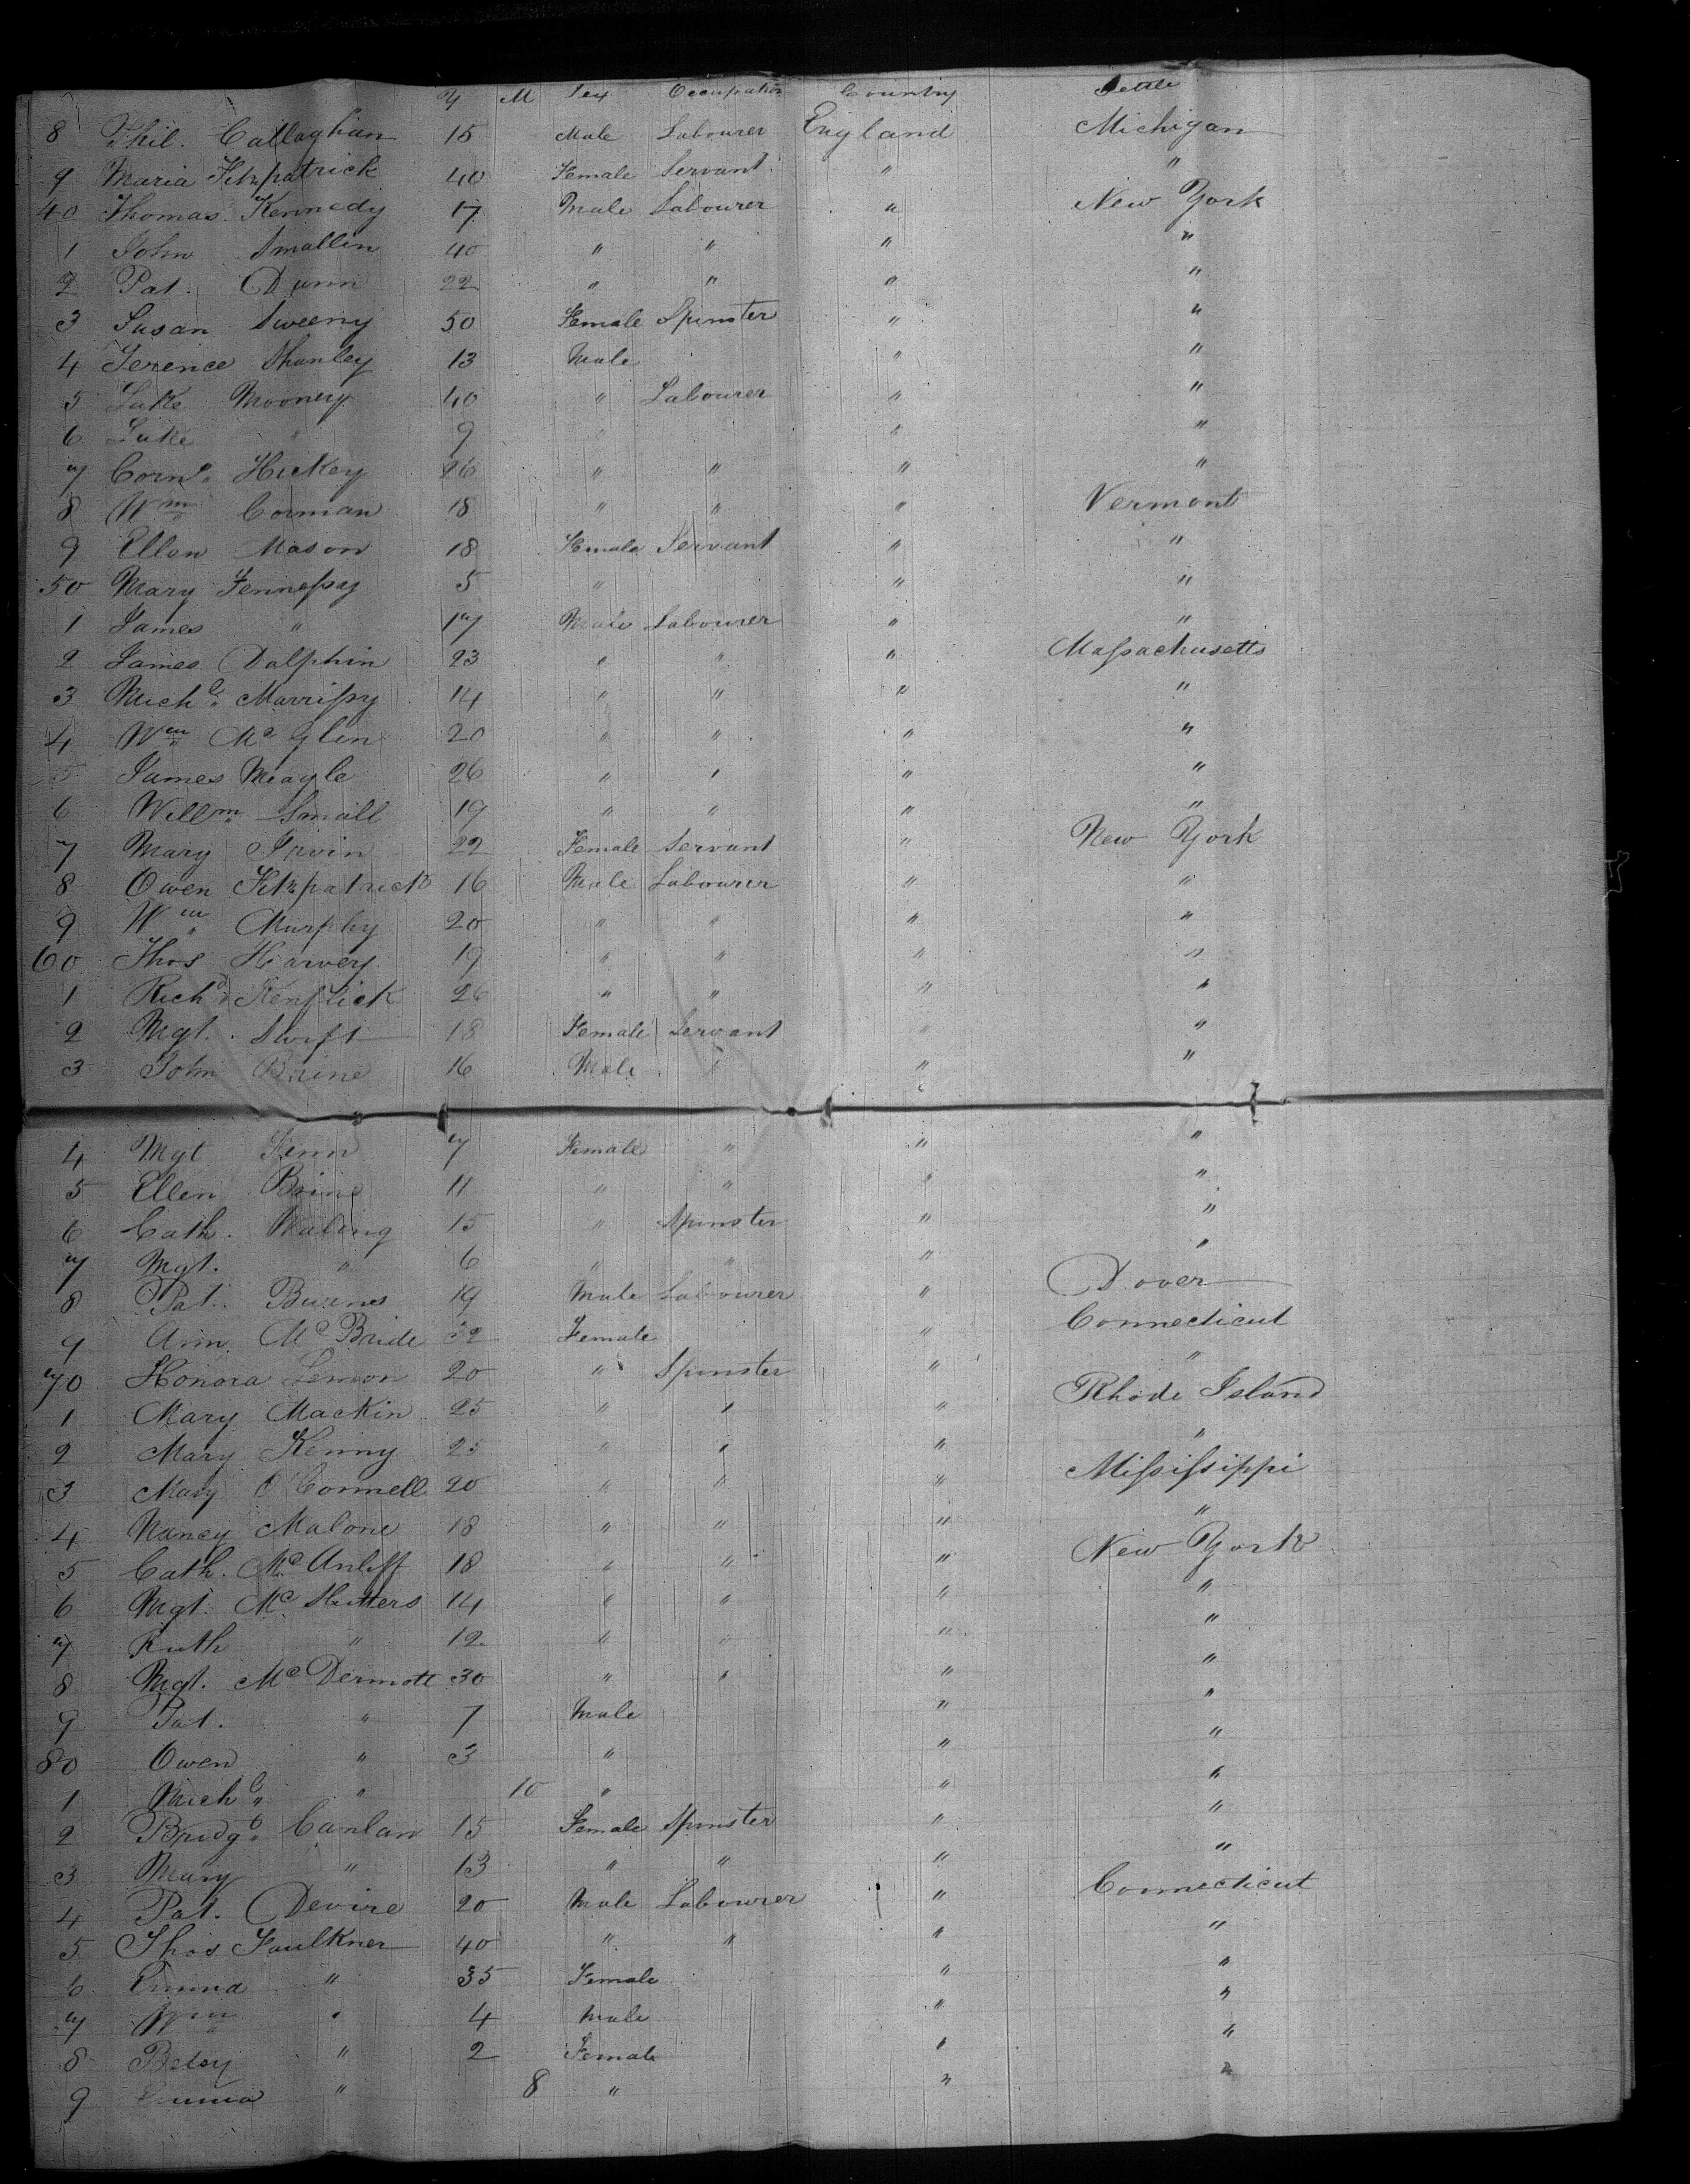 Y M Sex Occupation Country Settle
8 Phil. Callaghan 15 Male Labourer England Michigan
9 Maria Fitzpatrick 40 Female Servant " "
40 Thomas Kennedy 17 Male Labourer " New York
1 John Smallin 40 " " " "
2 Pat. Dunn 22 " " " "
3 Susan Sweeny 50 Female Spinster " "
4 Terence Shanley 13 Male " "
5 Luke Mooney 40 " Labourer " "
6 Luke " 9 " " "
7 Corns. Hickey 26 " " " "
8 Wm Corman 18 " " " Vermont
9 Ellen Mason 18 Female Servant " "
50 Mary Fennessy 5 " " "
1 James " 17 Male Labourer " "
2 James Dalphin 23 " " " Massachusetts
3 Michl. Marrissy 14 " " " "
4 Wm Mc Glin 20 " " " "
5 James Meagle 26 " " " "
6 Willm Small 19 " " " "
7 Mary Irvin 22 Female Servant " New York
8 Owen Fitzpatrick 16 Male Labourer " "
9 Wm Murphy 20 " " " "
60 Thos Harvey 19 " " " "
1 Richd 26 " " " "
2 Mgt. Swift 18 Female Servant " "
3 John Brine 16 Male " " "
4 Mgt 7 Female " " "
5 Ellen Brine 11 " " " "
6 Cath. Waling 15 " Spinster " "
7 Mgt. " 6 " " " "
8 Pat. Burns 19 Male Labourer " Dover
9 Ann Mc Bride 32 Female " Connecticut
70 Honora Lemon 20 " Spinster " "
1 Mary Mackin 25 " " " Rhode Island
2 Mary Kenny 25 " " " "
3 Mary O'Connell 20 " " " Mississippi
4 Nancy Malone 18 " " " "
5 Cath. Mc Anliff 18 " " " New York
6 Mgt. Mc Hutters 14 " " " "
7 Ruth " 12 " " " "
8 Mgt. Mc Dermott 30 " " " "
9 Pat. " 7 Male " "
80 Owen " 3 " " "
1 Michl. " 10 " " "
2 Bridgt. Canlan 15 Female Spinster " "
3 Mary " 13 " " " "
4 Pat. Devire 20 Male Labourer " Connecticut
5 Thos Faulkner 40 " " " "
6 Emma " 35 Female " "
7 Wm " 4 Male " "
8 Betsy " 2 Female " "
9 Emma " 8 " " "